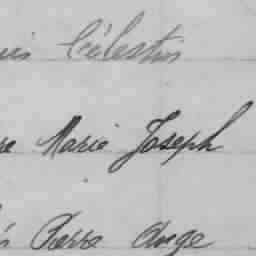 Célestin
Marie Joseph
Pierre Ange